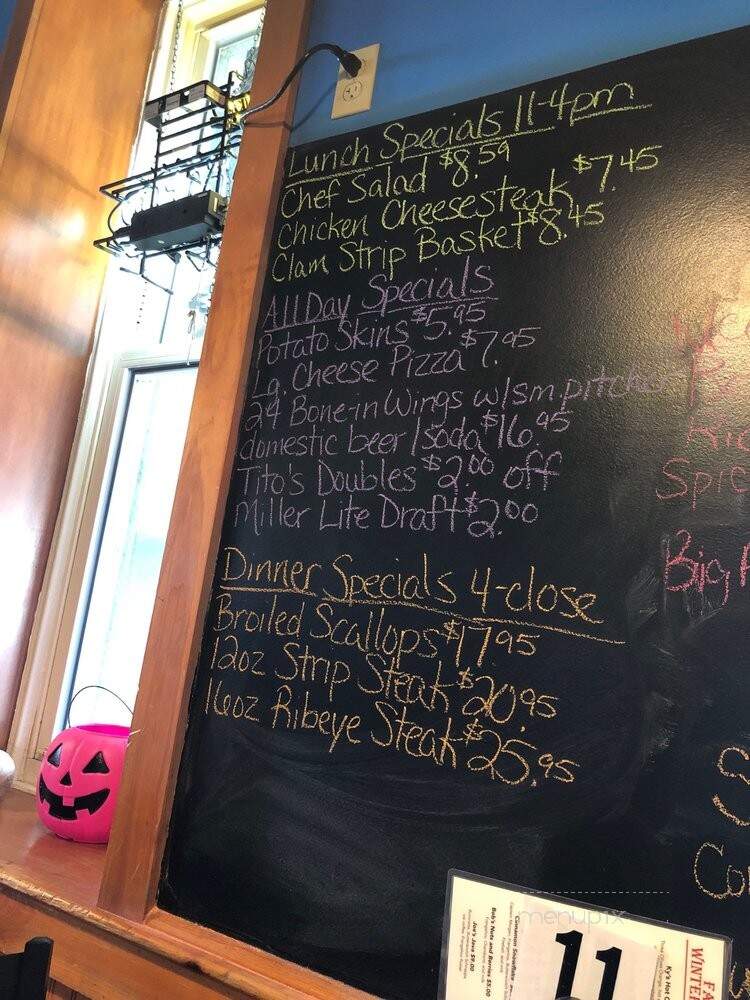 Lunch Specials 11-4pm
Chef Salad $8.59
Chicken Cheesesteak $7.45
Clam Strip Basket $8.45
All Day Specials
Potato Skins $5.95
Lg. Cheese Pizza $7.95
24 Bone-in Wings w/sm.pitcher
domestic beer/soda $16.95
Tito's Doubles $2.00 off
Miller Lite Draft $2.00
Dinner Specials 4-close
Broiled Scallops $17.95
12oz Strip Steak $20.95
16oz Ribeye Steak $25.95
Big
menupix
11
Cinnamon Snowflake
Bob's Nuts and Berries $5.00
Joe's Java $9.00
Ky's Hot